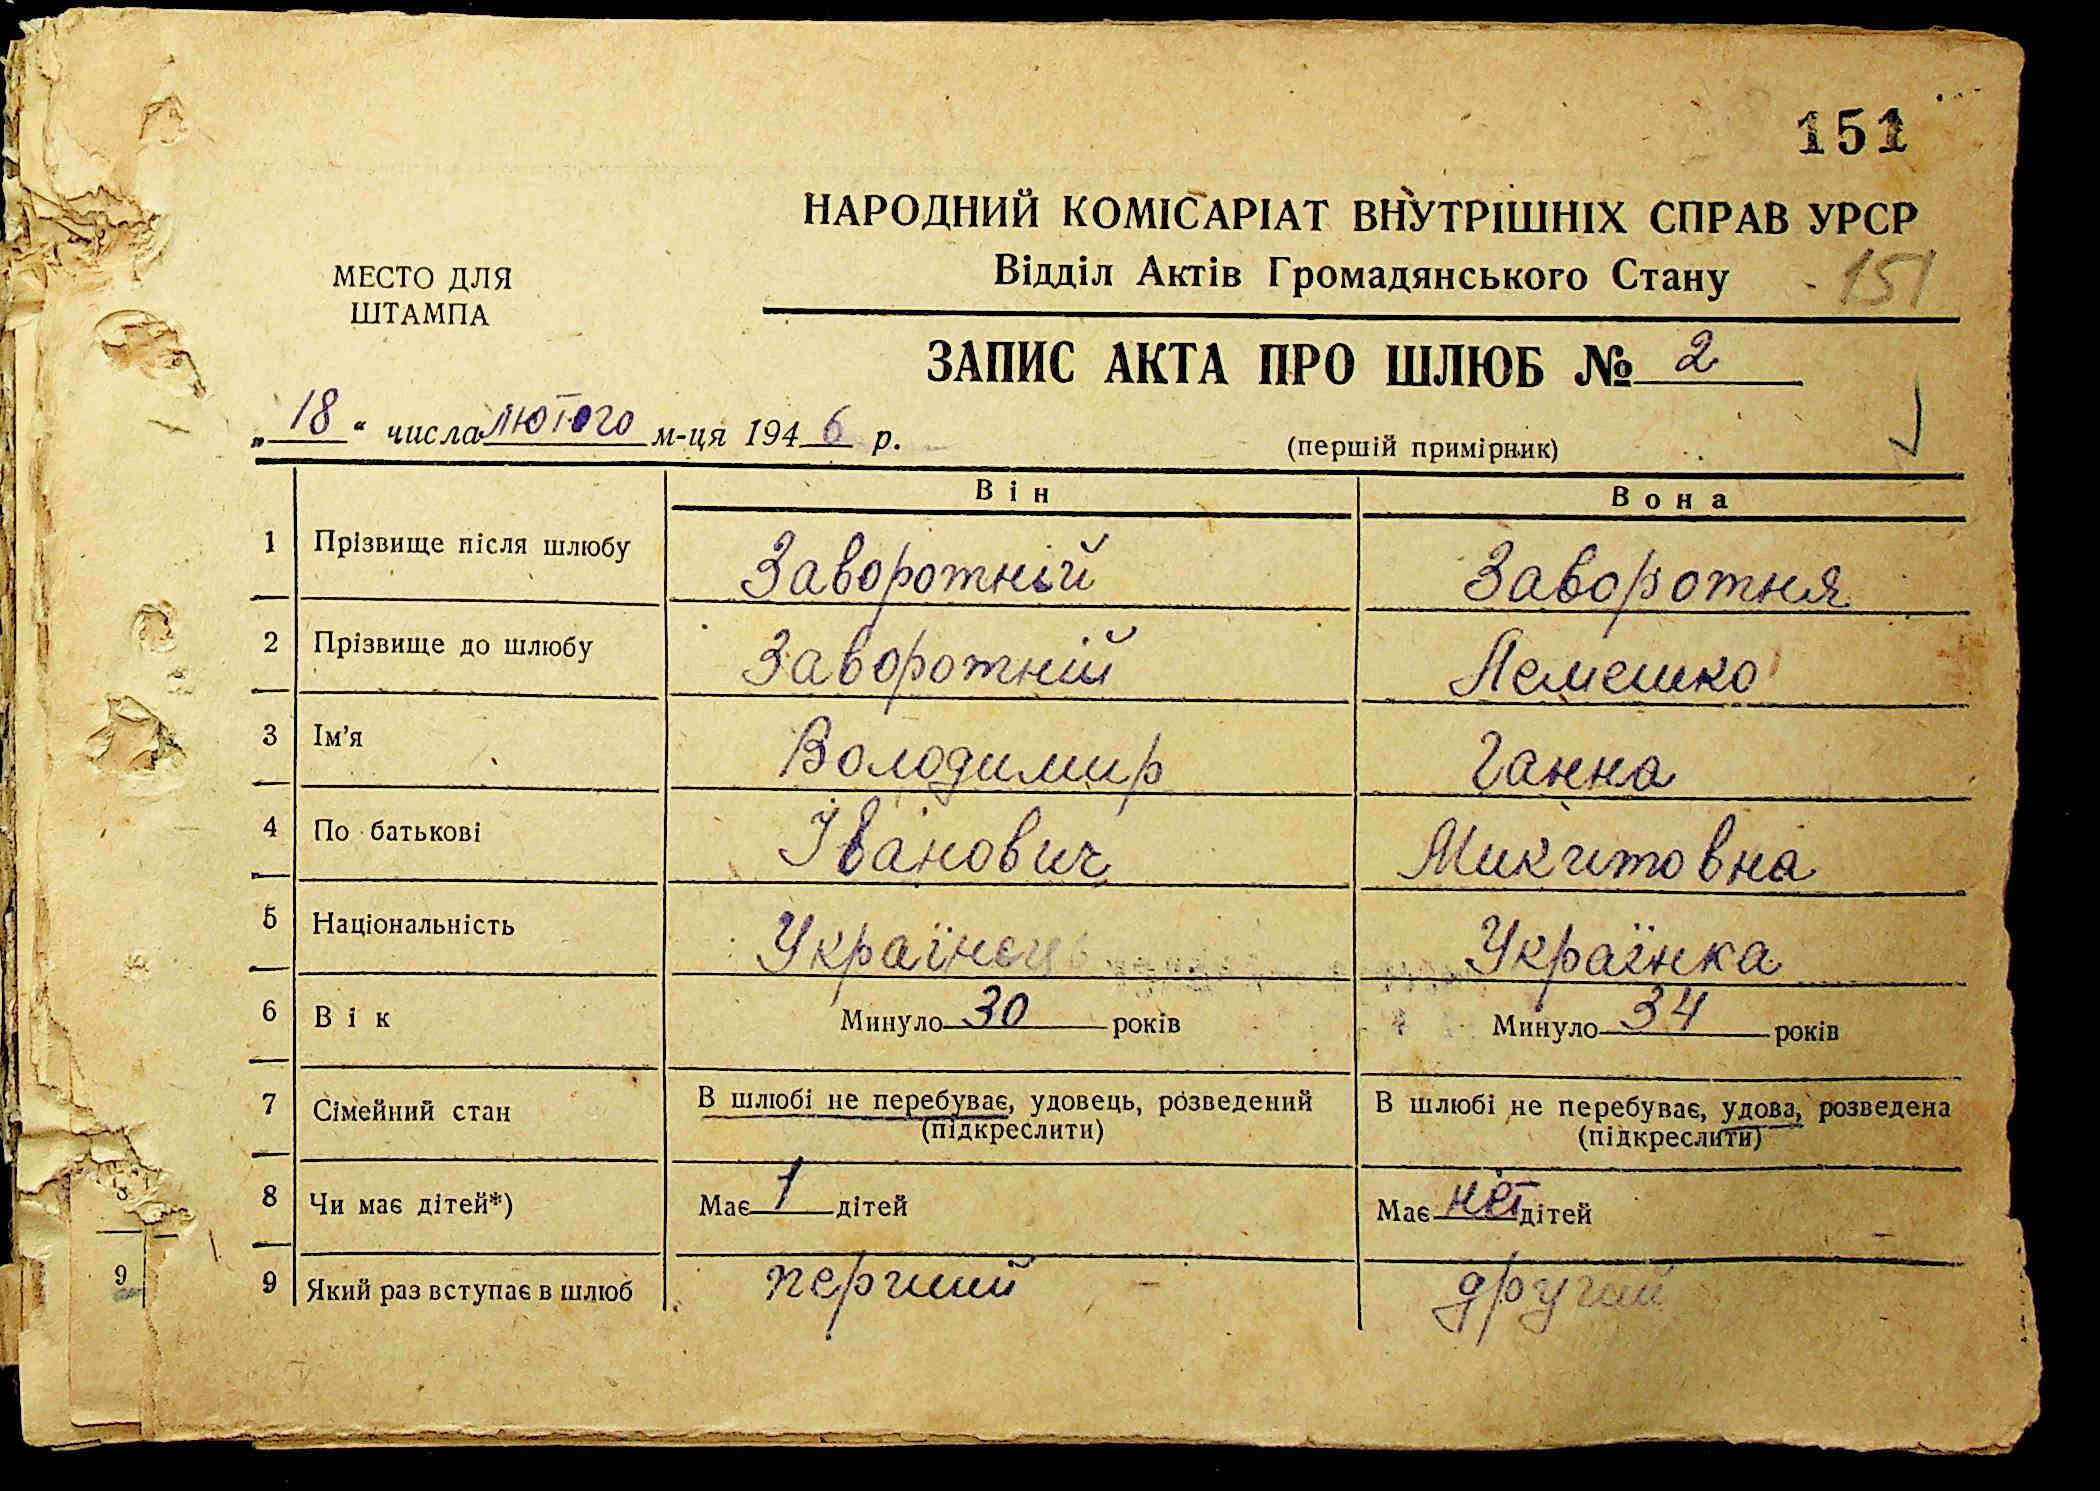 151
НАРОДНИЙ КОМІСАРІАТ ВНУТРІШНІХ СПРАВ УРСР
Відділ Актів Громадянського Стану
151
МЕСТО ДЛЯ
ШТАМПА
ЗАПИС АКТА ПРО ШЛЮБ № 2
„18“ числа лютого м-ця 1946 р.
(першій примірник)
Він Вона
1 Прізвище після шлюбу Заворотній Заворотня
2 Прізвище до шлюбу Заворотній Лемешко
3 Ім'я Володимир Ганна
4 По батькові Іванович Микитовна
5 Національність Українець Українка
6 Вік Минуло 30 років Минуло 34 років
7 Сімейний стан В шлюбі не перебуває, удовець, розведений В шлюбі не перебуває, удова, розведена
(підкреслити) (підкреслити)
8 Чи має дітей*) Має 1 дітей Має нет дітей
9 Який раз вступає в шлюб перший другий
9